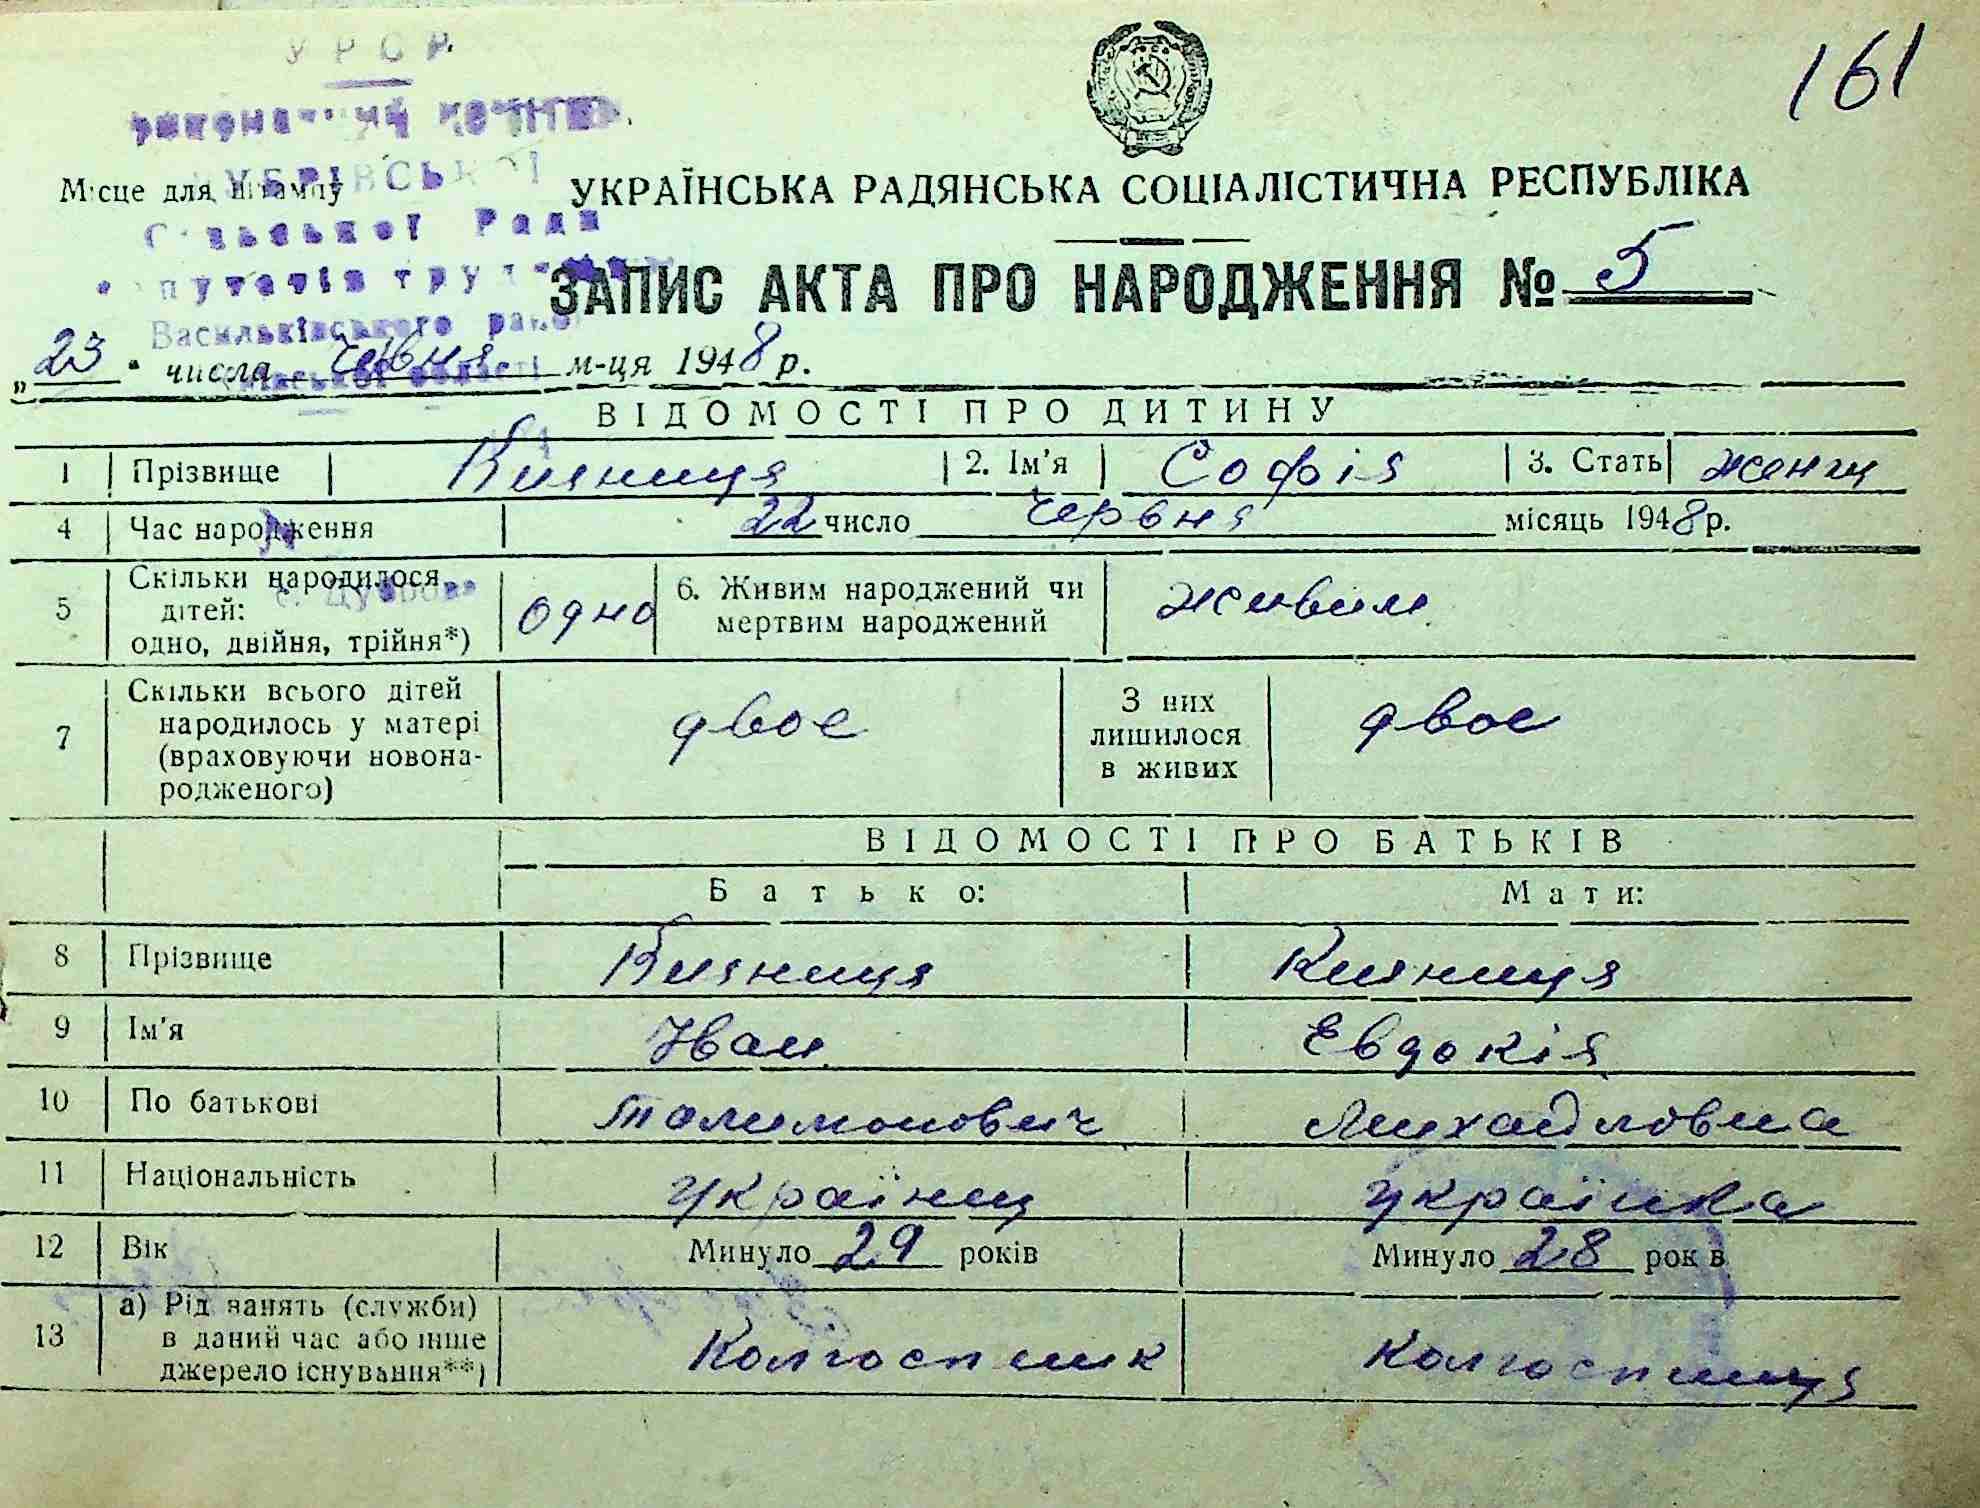 161
УРСР
виконавчий комітет
Місце для штампу
УБРІВСЬКОЇ
УКРАЇНСЬКА РАДЯНСЬКА СОЦІАЛІСТИЧНА РЕСПУБЛІКА
Сільської Ради
путатів труд
ЗАПИС АКТА ПРО НАРОДЖЕННЯ № 5
Васильківського райо
„23" числа червня м-ця 1948 р.
ської області
ВІДОМОСТІ ПРО ДИТИНУ
1 Прізвище Кияниця 2. Ім'я Софія 3. Стать женщ
4 Час народження 22 число червня місяць 1948 р.
5 Скільки народилося дітей: одно, двійня, трійня*) одно 6. Живим народжений чи мертвим народжений живим
с. Дуброва
7 Скільки всього дітей народилось у матері (враховуючи новонародженого) двоє З них лишилося в живих двоє
ВІДОМОСТІ ПРО БАТЬКІВ
Батько: Мати:
8 Прізвище Кияниця Кияниця
9 Ім'я Іван Евдокія
10 По батькові Талимонович Михайловна
11 Національність українец українка
12 Вік Минуло 29 років Минуло 28 років
13 а) Рід занять (служби) в даний час або інше джерело існування**) Колгоспник Колгоспниця